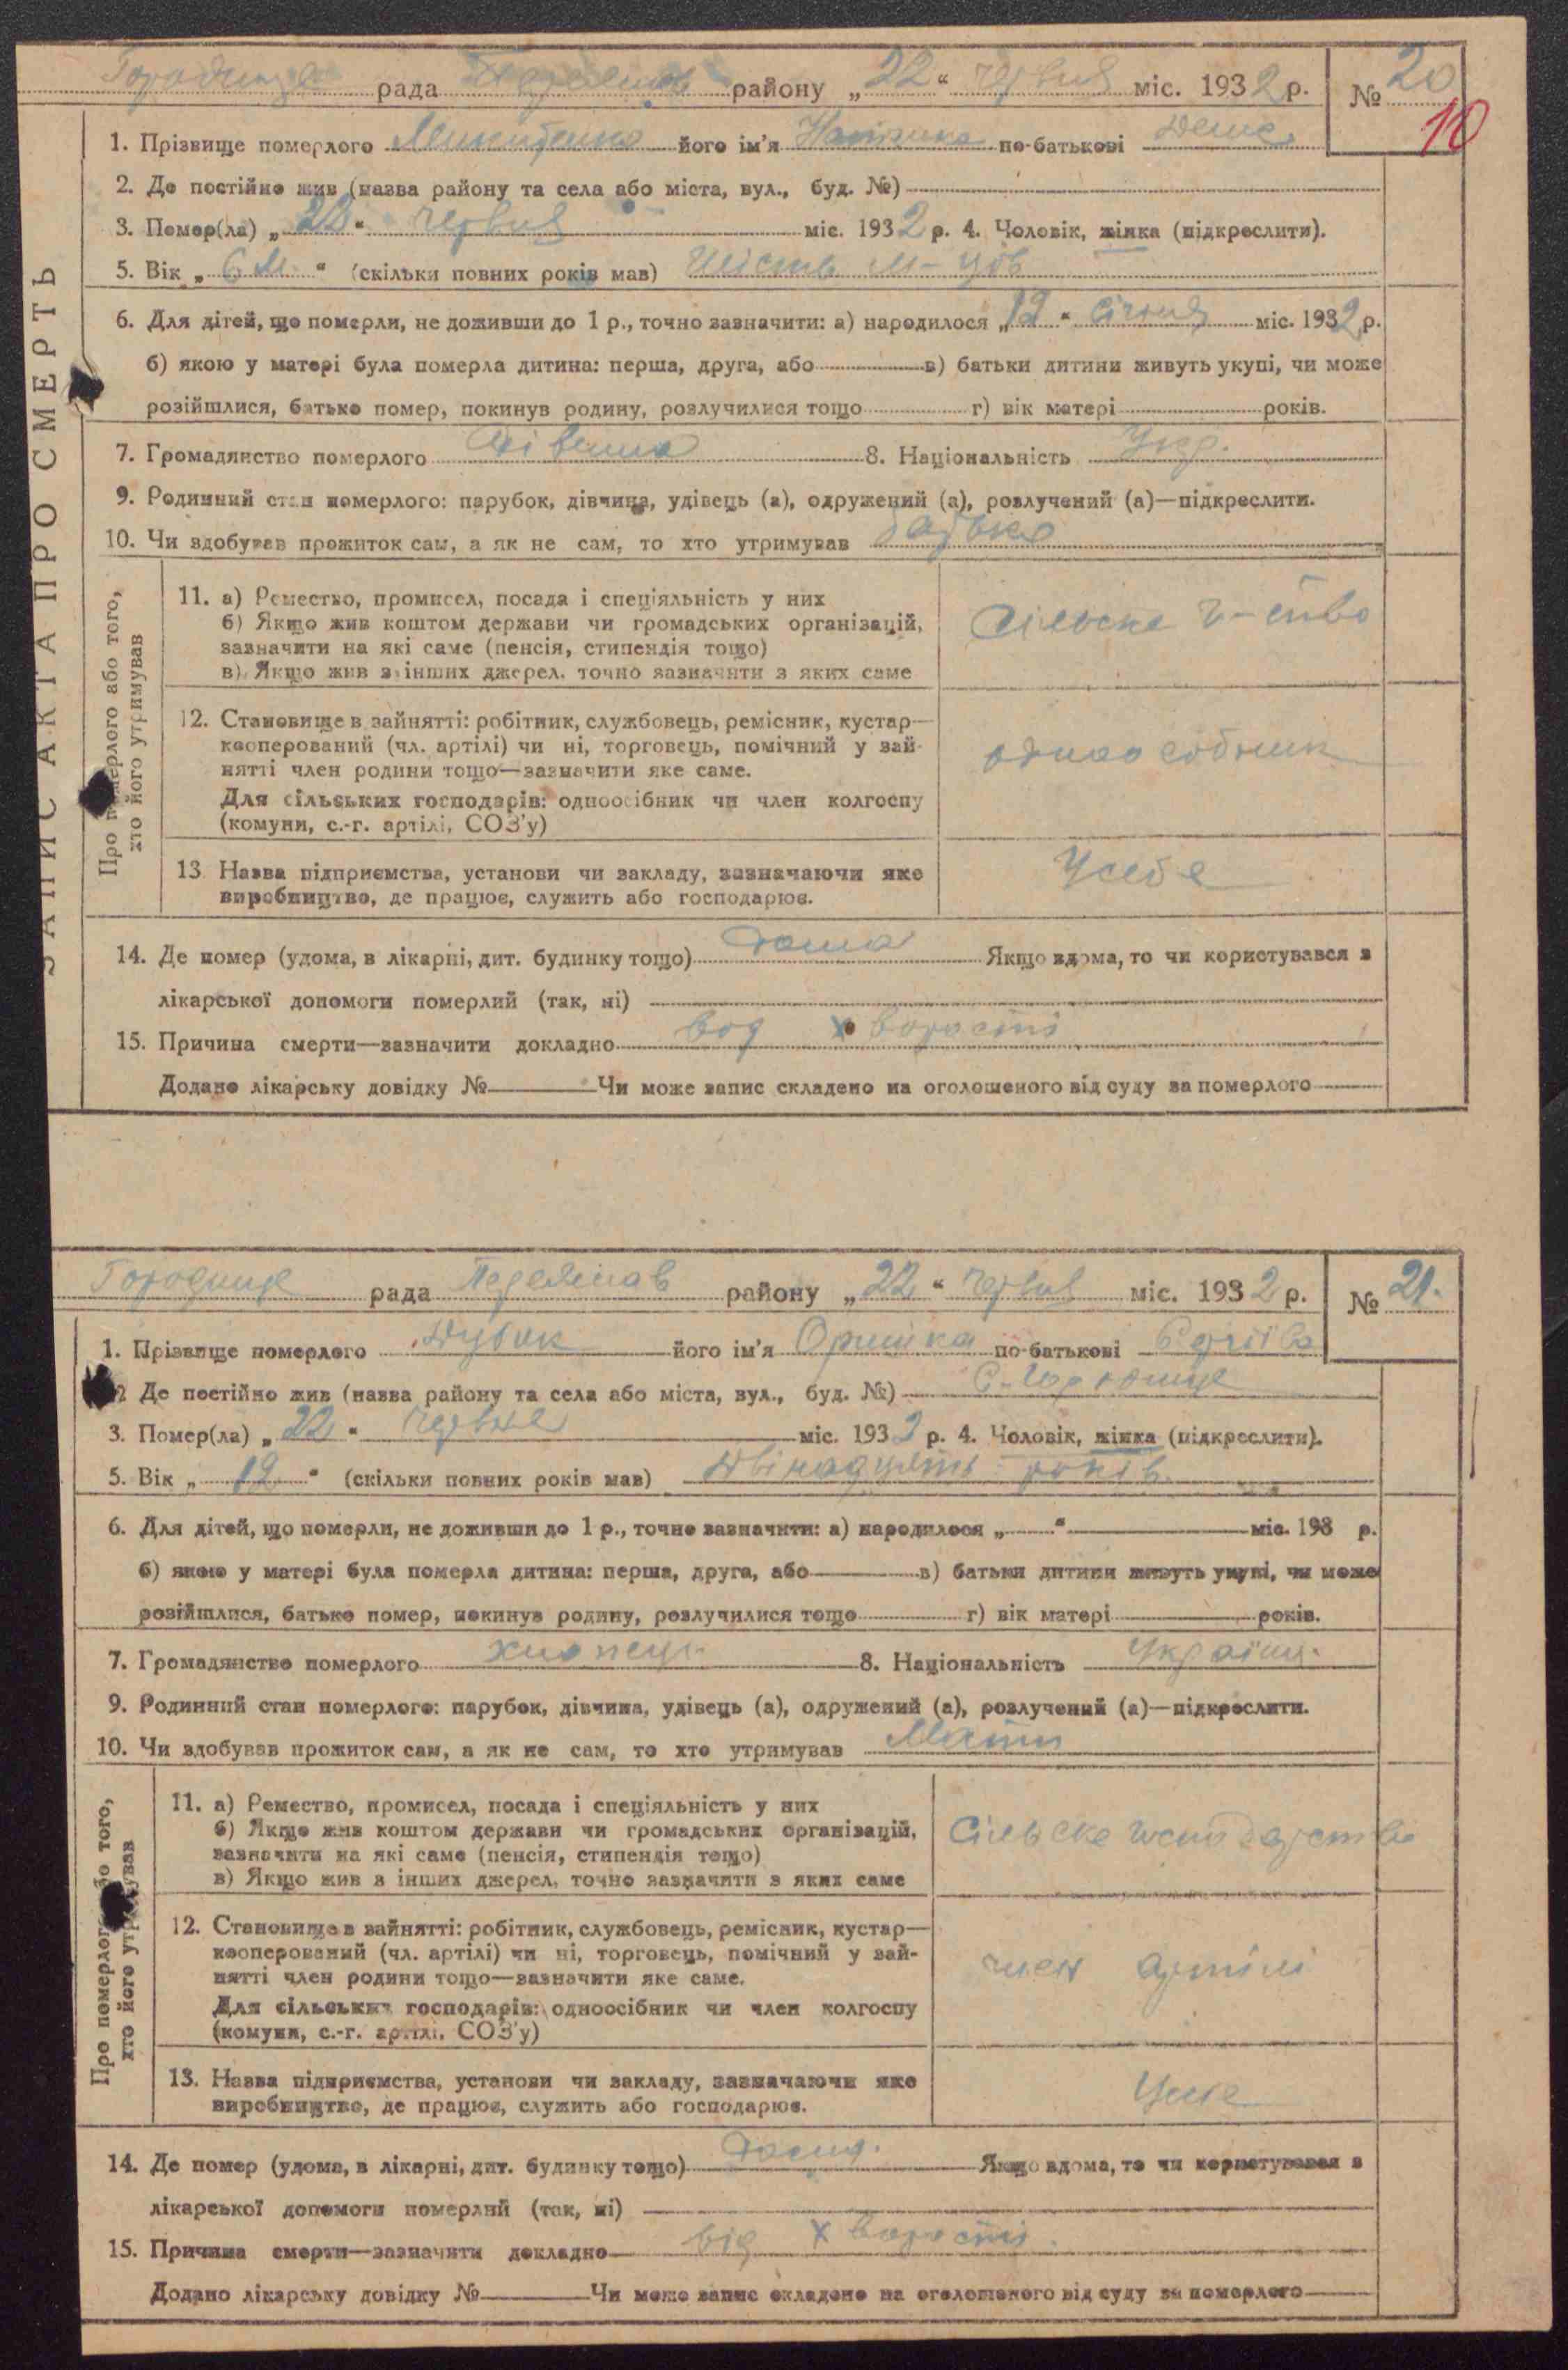 рада району „22“ червня міс. 1932 р. № 20
10
1. Прізвище померлого його ім'я по-батькові
2. Де постійно жив (назва району та села або міста, вул., буд. №)
3. Помер(ла) „22“ червня міс. 1932 р. 4. Чоловік, жінка (підкреслити).
5. Вік „6 м.“ (скільки повних років мав) Шість м-ців
6. Для дітей, що померли, не доживши до 1 р., точно зазначити: а) народилося „12“ січня міс. 1932 р.
б) якою у матері була померла дитина: перша, друга, або в) батьки дитини живуть укупі, чи може
розійшлися, батько помер, покинув родину, розлучилися тощо г) вік матері років.
7. Громадянство померлого 8. Національність Укр.
9. Родинний стан померлого: парубок, дівчина, удівець (а), одружений (а), розлучений (а)—підкреслити.
10. Чи здобував прожиток сам, а як не сам, то хто утримував батько
ЗАПИС АКТА ПРО СМЕРТЬ
Про померлого або того,
хто його утримував
11. а) Ремество, промисел, посада і спеціяльність у них
б) Якщо жив коштом держави чи громадських організацій,
зазначити на які саме (пенсія, стипендія тощо)
в) Якщо жив з інших джерел, точно зазначити з яких саме
Сільске г-ство
12. Становище в зайнятті: робітник, службовець, ремісник, кустар—
кооперований (чл. артілі) чи ні, торговець, помічний у зай-
нятті член родини тощо—зазначити яке саме.
Для сільських господарів: одноосібник чи член колгоспу
(комуни, с.-г. артілі, СОЗ'у)
одноособник
13 Назва підприємства, установи чи закладу, зазначаючи яке
виробництво, де працює, служить або господарює.
У себе
14. Де помер (удома, в лікарні, дит. будинку тощо) дома Якщо вдома, то чи користувався з
лікарської допомоги померлий (так, ні)
15. Причина смерти—зазначити докладно вод хворости
Додано лікарську довідку № Чи може запис складено на оголошеного від суду за померлого
Городище рада Переяслав району „22“ червня міс. 1932 р. № 21.
1. Прізвище померлого його ім'я Оришка по-батькові
2 Де постійно жив (назва району та села або міста, вул., буд. №) с. Городище
3. Помер(ла) „22“ червня міс. 1932 р. 4. Чоловік, жінка (підкреслити).
5. Вік „12“ (скільки повних років мав) Двінадцять років
6. Для дітей, що померли, не доживши до 1 р., точно зазначити: а) народилося „ “ міс. 193 р.
б) якою у матері була померла дитина: перша, друга, або в) батьки дитини живуть укупі, чи може
розійшлися, батько помер, покинув родину, розлучилися тощо г) вік матері років.
7. Громадянство померлого хлопець 8. Національність
9. Родинний стан померлого: парубок, дівчина, удівець (а), одружений (а), розлучений (а)—підкреслити.
10. Чи здобував прожиток сам, а як не сам, то хто утримував Мати
Про померлого або того,
хто його утримував
11. а) Ремество, промисел, посада і спеціяльність у них
б) Якщо жив коштом держави чи громадських організацій,
зазначити на які саме (пенсія, стипендія тощо)
в) Якщо жив з інших джерел, точно зазначити з яких саме
Сільске господарство
12. Становище в зайнятті: робітник, службовець, ремісник, кустар—
кооперований (чл. артілі) чи ні, торговець, помічний у зай-
нятті член родини тощо—зазначити яке саме.
Для сільських господарів: одноосібник чи член колгоспу
(комуни, с.-г. артілі, СОЗ'у)
член артілі
13. Назва підприємства, установи чи закладу, зазначаючи яке
виробництво, де працює, служить або господарює.
14. Де помер (удома, в лікарні, дит. будинку тощо) Якщо вдома, то чи користувався з
лікарської допомоги померлий (так, ні)
15. Причина смерти—зазначити докладно від хворости.
Додано лікарську довідку № Чи може запис складено на оголошеного від суду за померлого